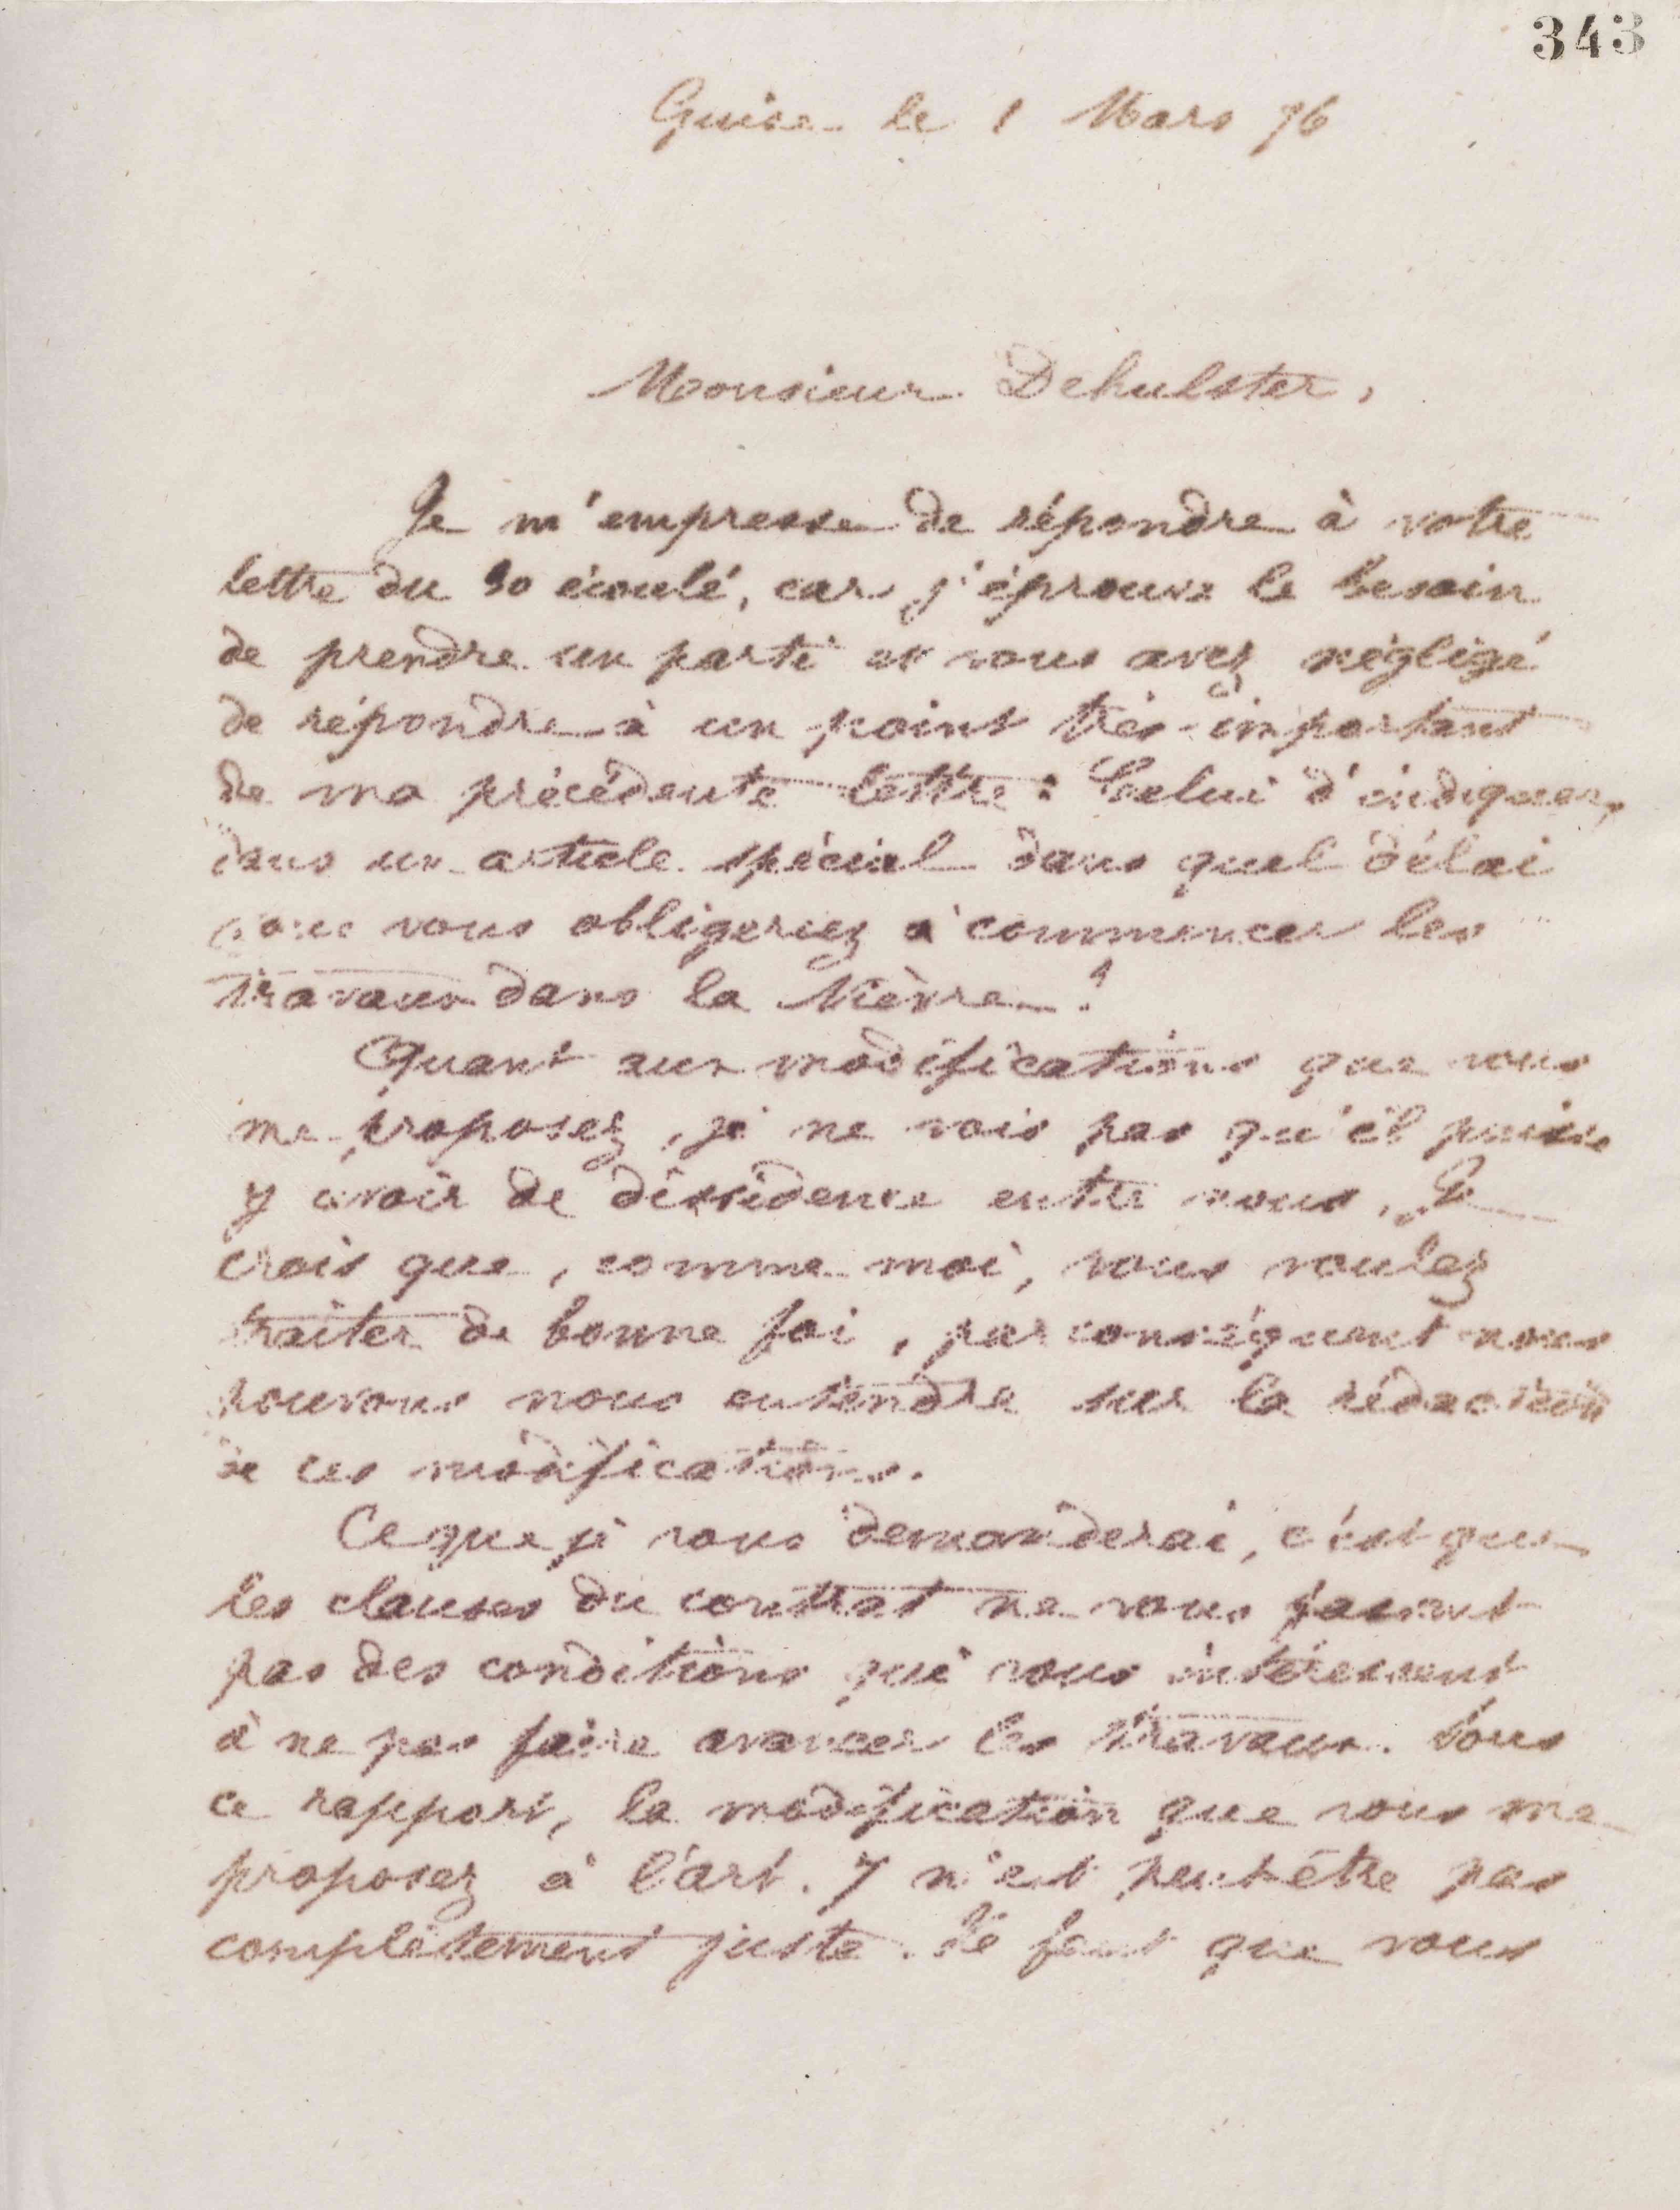 343
Guise le 1 Mars 76
Monsieur Dehulster,
Je m'empresse de répondre à votre
lettre du 30 écoulé, car j'éprouve le besoin
de prendre un parti et vous avez négligé
de répondre à un point très-important
de ma précédente lettre : Celui d'indiquer,
dans un article spécial dans quel délai
vous vous obligeriez à commencer les
travaux dans la Nièvre ?
Quant aux modifications que vous
me proposez, je ne vois pas qu'il puisse
y avoir de dissidence entre nous. Je
crois que, comme moi, vous voulez
traiter de bonne foi, par conséquent nous
pouvons nous entendre sur la rédaction
de ces modifications.
Ce que je vous demanderai, c'est que
les clauses du contrat ne vous fassent
pas des conditions qui vous intéressent
à ne pas faire avancer les travaux. Sous
ce rapport, la modification que vous me
proposez à l'art. 7 n'est peut-être pas
complètement juste. Il faut que vous